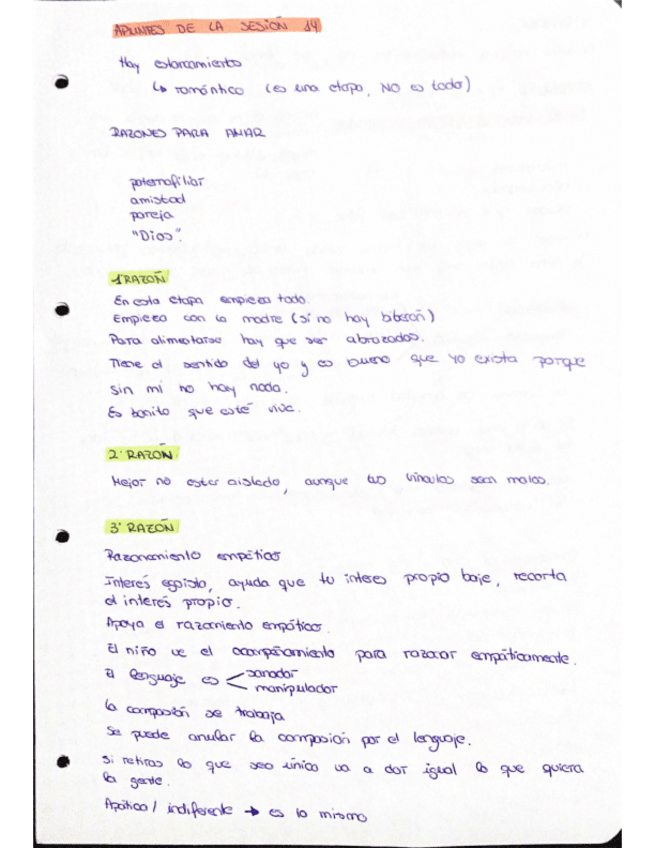 APUNTES DE LA SESIÓN 14
Hay estancamiento
↳ romántico (es una etapa, NO es todo)
RAZONES PARA AMAR
paternofilial
amistad
pareja
"Dios".
1 RAZÓN
En esta etapa empieza todo.
Empieza con la madre (si no hay biberón)
Para alimentarse hay que ser abrazados.
Tiene el sentido del yo y es bueno que yo exista porque
sin mí no hay nada.
Es bonito que esté viva.
2ª RAZÓN
Mejor no estar aislado, aunque los vínculos sean malos.
3ª RAZÓN
Razonamiento empático
Interés egoísta, ayuda que tu interes propio baje, recorta
el interés propio.
Apoya el razamiento empático.
El niño ve el acompañamiento para razonar empáticamente.
El lenguaje es < sanador
manipulador
la compasión se trabaja
Se puede anular la compasión por el lenguaje.
Si retiras lo que sea único va a dar igual lo que quiera
la gente.
Apático / indiferente → es lo mismo